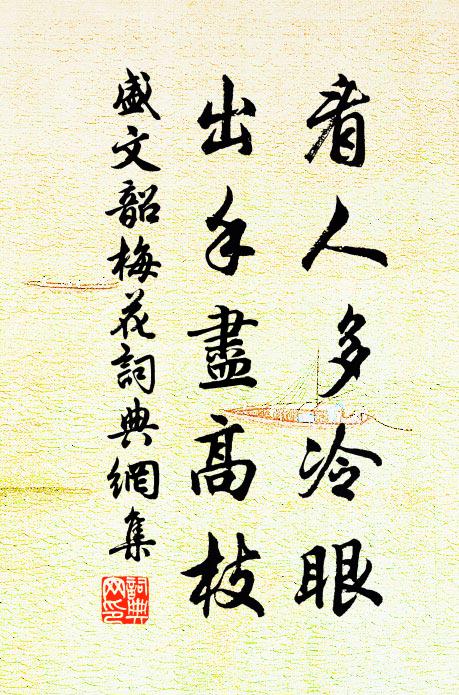 看人多冷眼
出手盡高枝
盛文韶梅花詞典網集
詞典網印